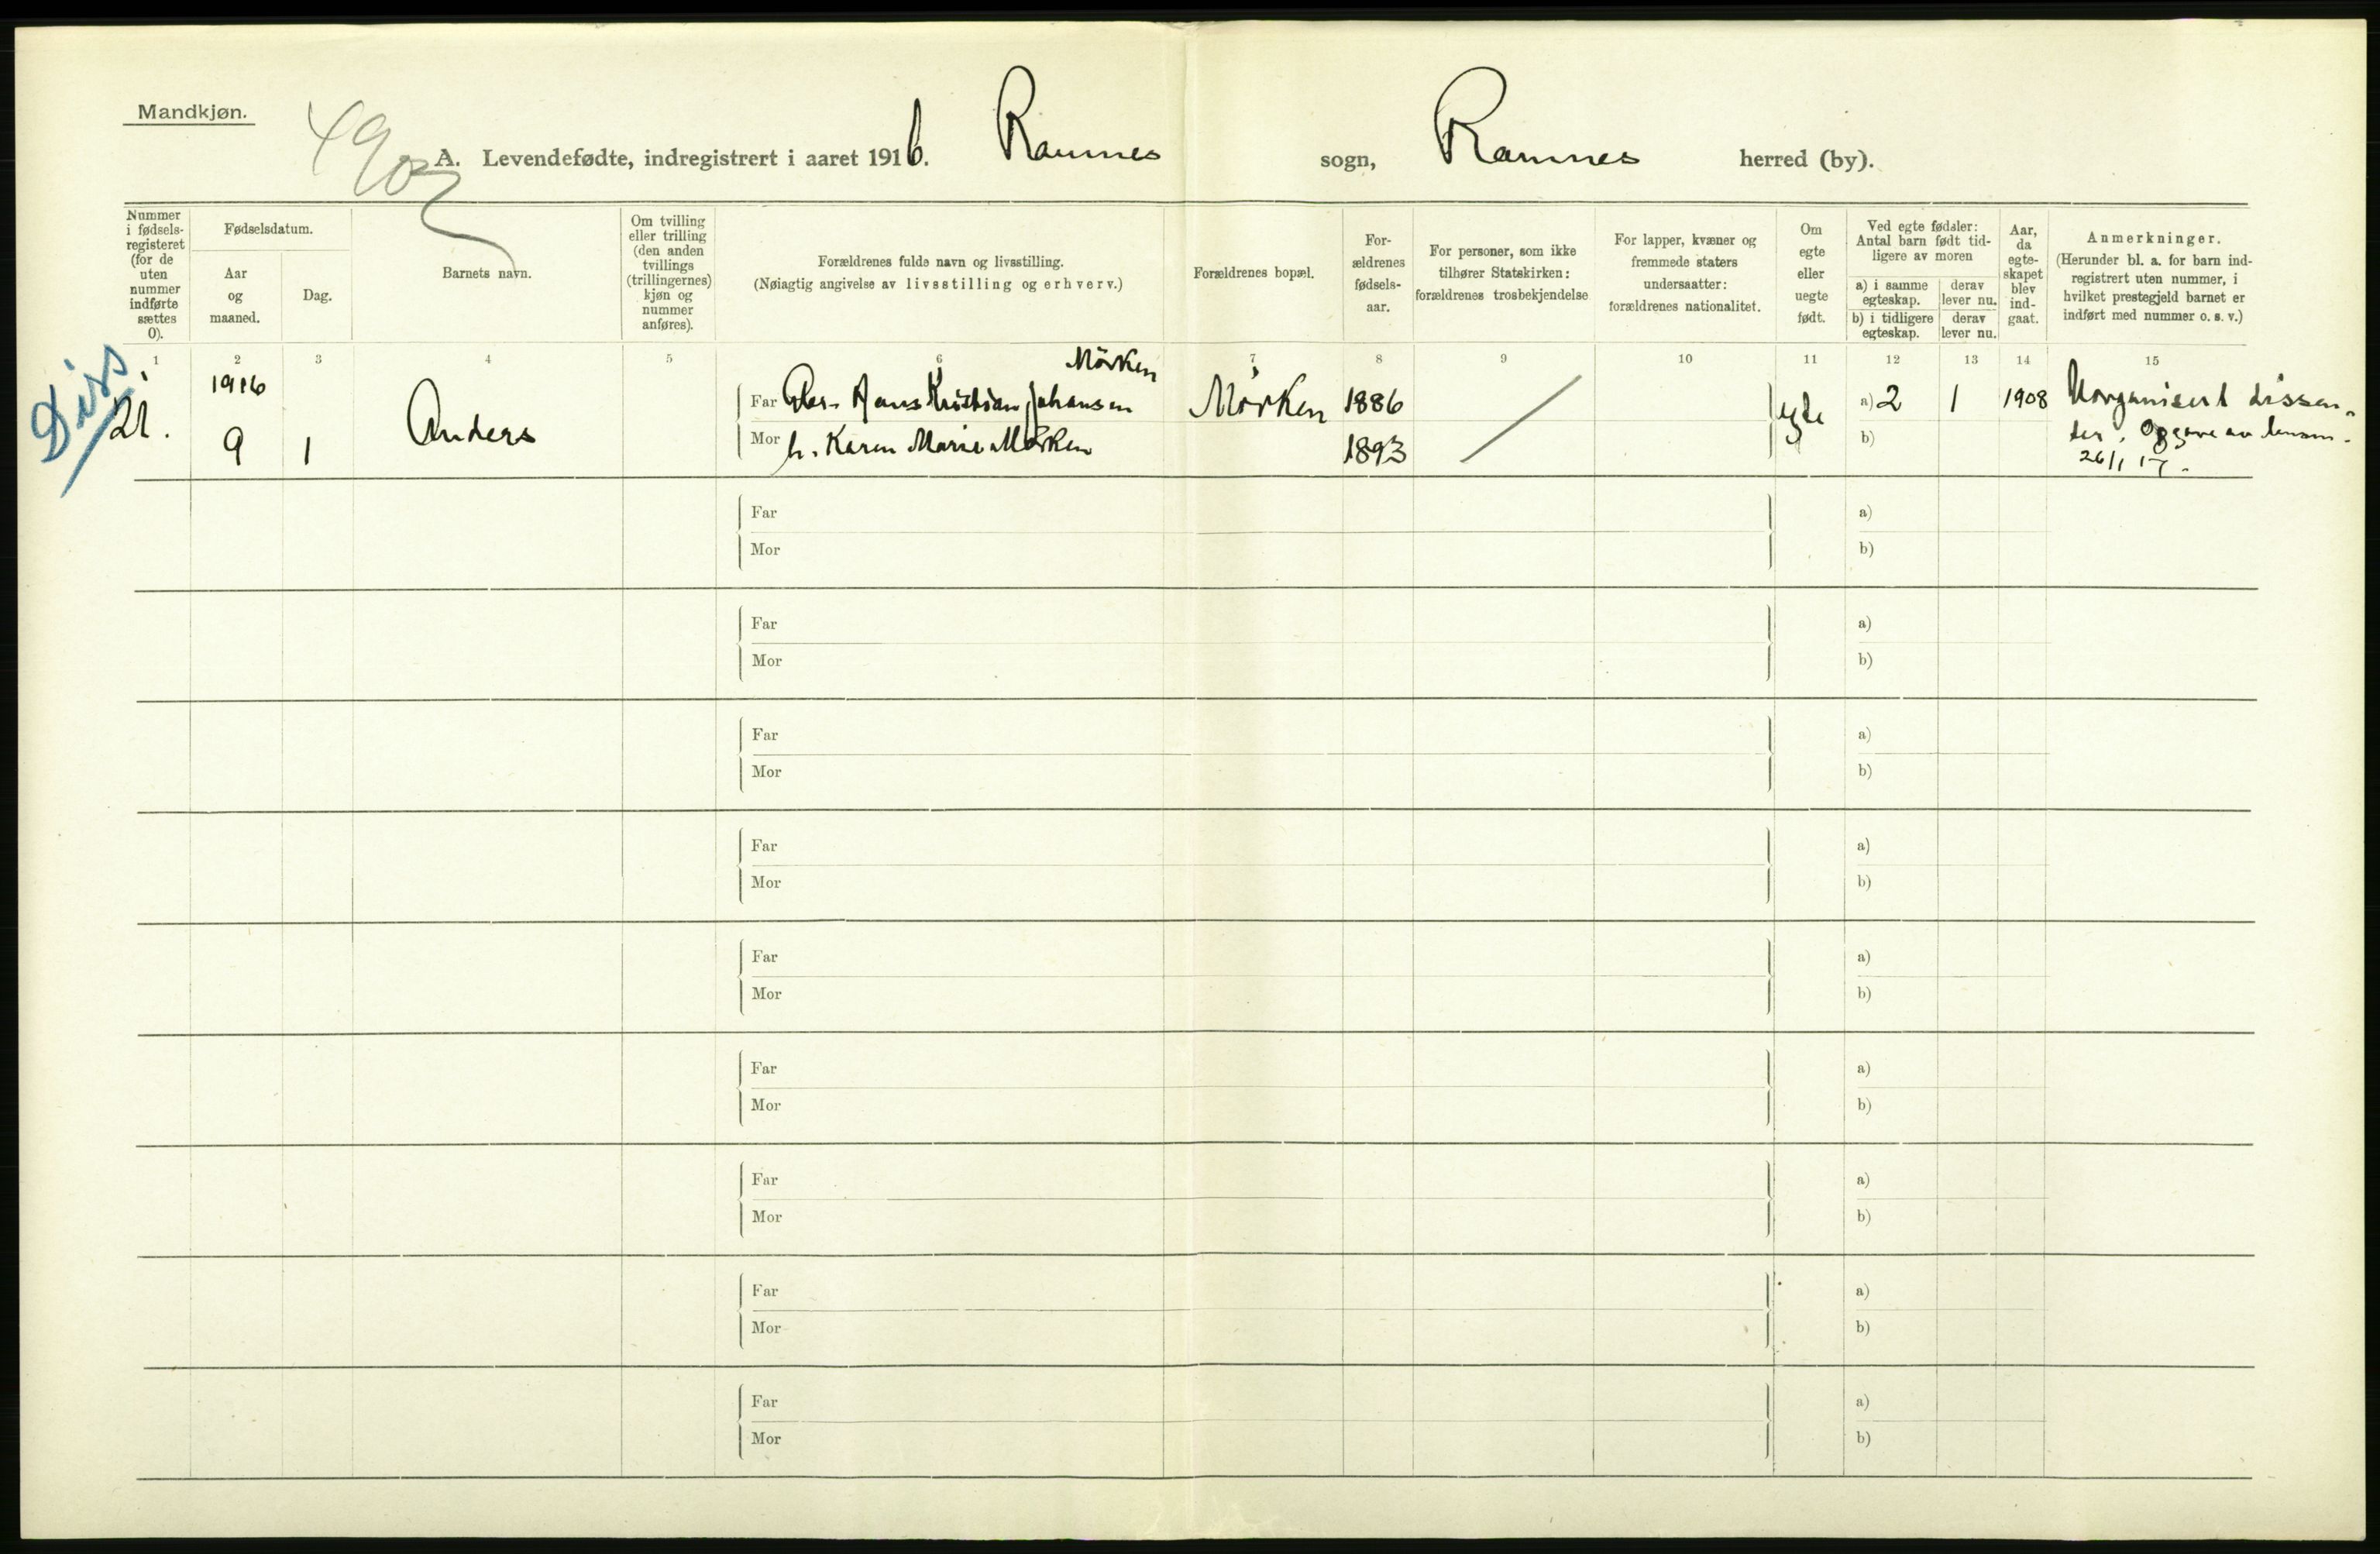 Mandkjøn.
A. Levendefødte, indregistrert i aaret 1916. Ramnes sogn, Ramnes herred (by).
Nummer i fødsels- registeret (for de uten nummer indførte sættes 0).
Fødselsdatum.
Aar og maaned.
Dag.
Barnets navn.
Om tvilling eller trilling (den anden tvillings (trillingernes) kjøn og nummer anføres).
Forældrenes fulde navn og livsstilling.
(Nøiagtig angivelse av livsstilling og erhverv.)
Forældrenes bopæl.
For- ældrenes fødsels- aar.
For personer, som ikke tilhører Statskirken: forældrenes trosbekjendelse
For lapper, kvæner og fremmede staters undersaatter: forældrenes nationalitet.
Om egte eller uegte født.
Ved egte fødsler: Antal barn født tid- ligere av moren
a) i samme egteskap.
derav lever nu.
b) i tidligere egteskap.
derav lever nu.
Aar, da egte- skapet blev ind- gaat.
Anmerkninger.
(Herunder bl. a. for barn ind- registrert uten nummer, i hvilket prestegjeld barnet er indført med nummer o. s. v.)
1 2 3 4 5 6 7 8 9 10 11 12 13 14 15
Diss
21.
1916
9 1
Anders
Mörken
Far Hans Kristian Johansen
Mor h. Karen Marie Mörken
Mörken
1886
1893
egte
a) 2 1 1908
b)
Uorganisert dissen-
ter. Opgave av lensm.
26/1 17.
Far a)
Mor b)
Far a)
Mor b)
Far a)
Mor b)
Far a)
Mor b)
Far a)
Mor b)
Far a)
Mor b)
Far a)
Mor b)
Far a)
Mor b)
Far a)
Mor b)